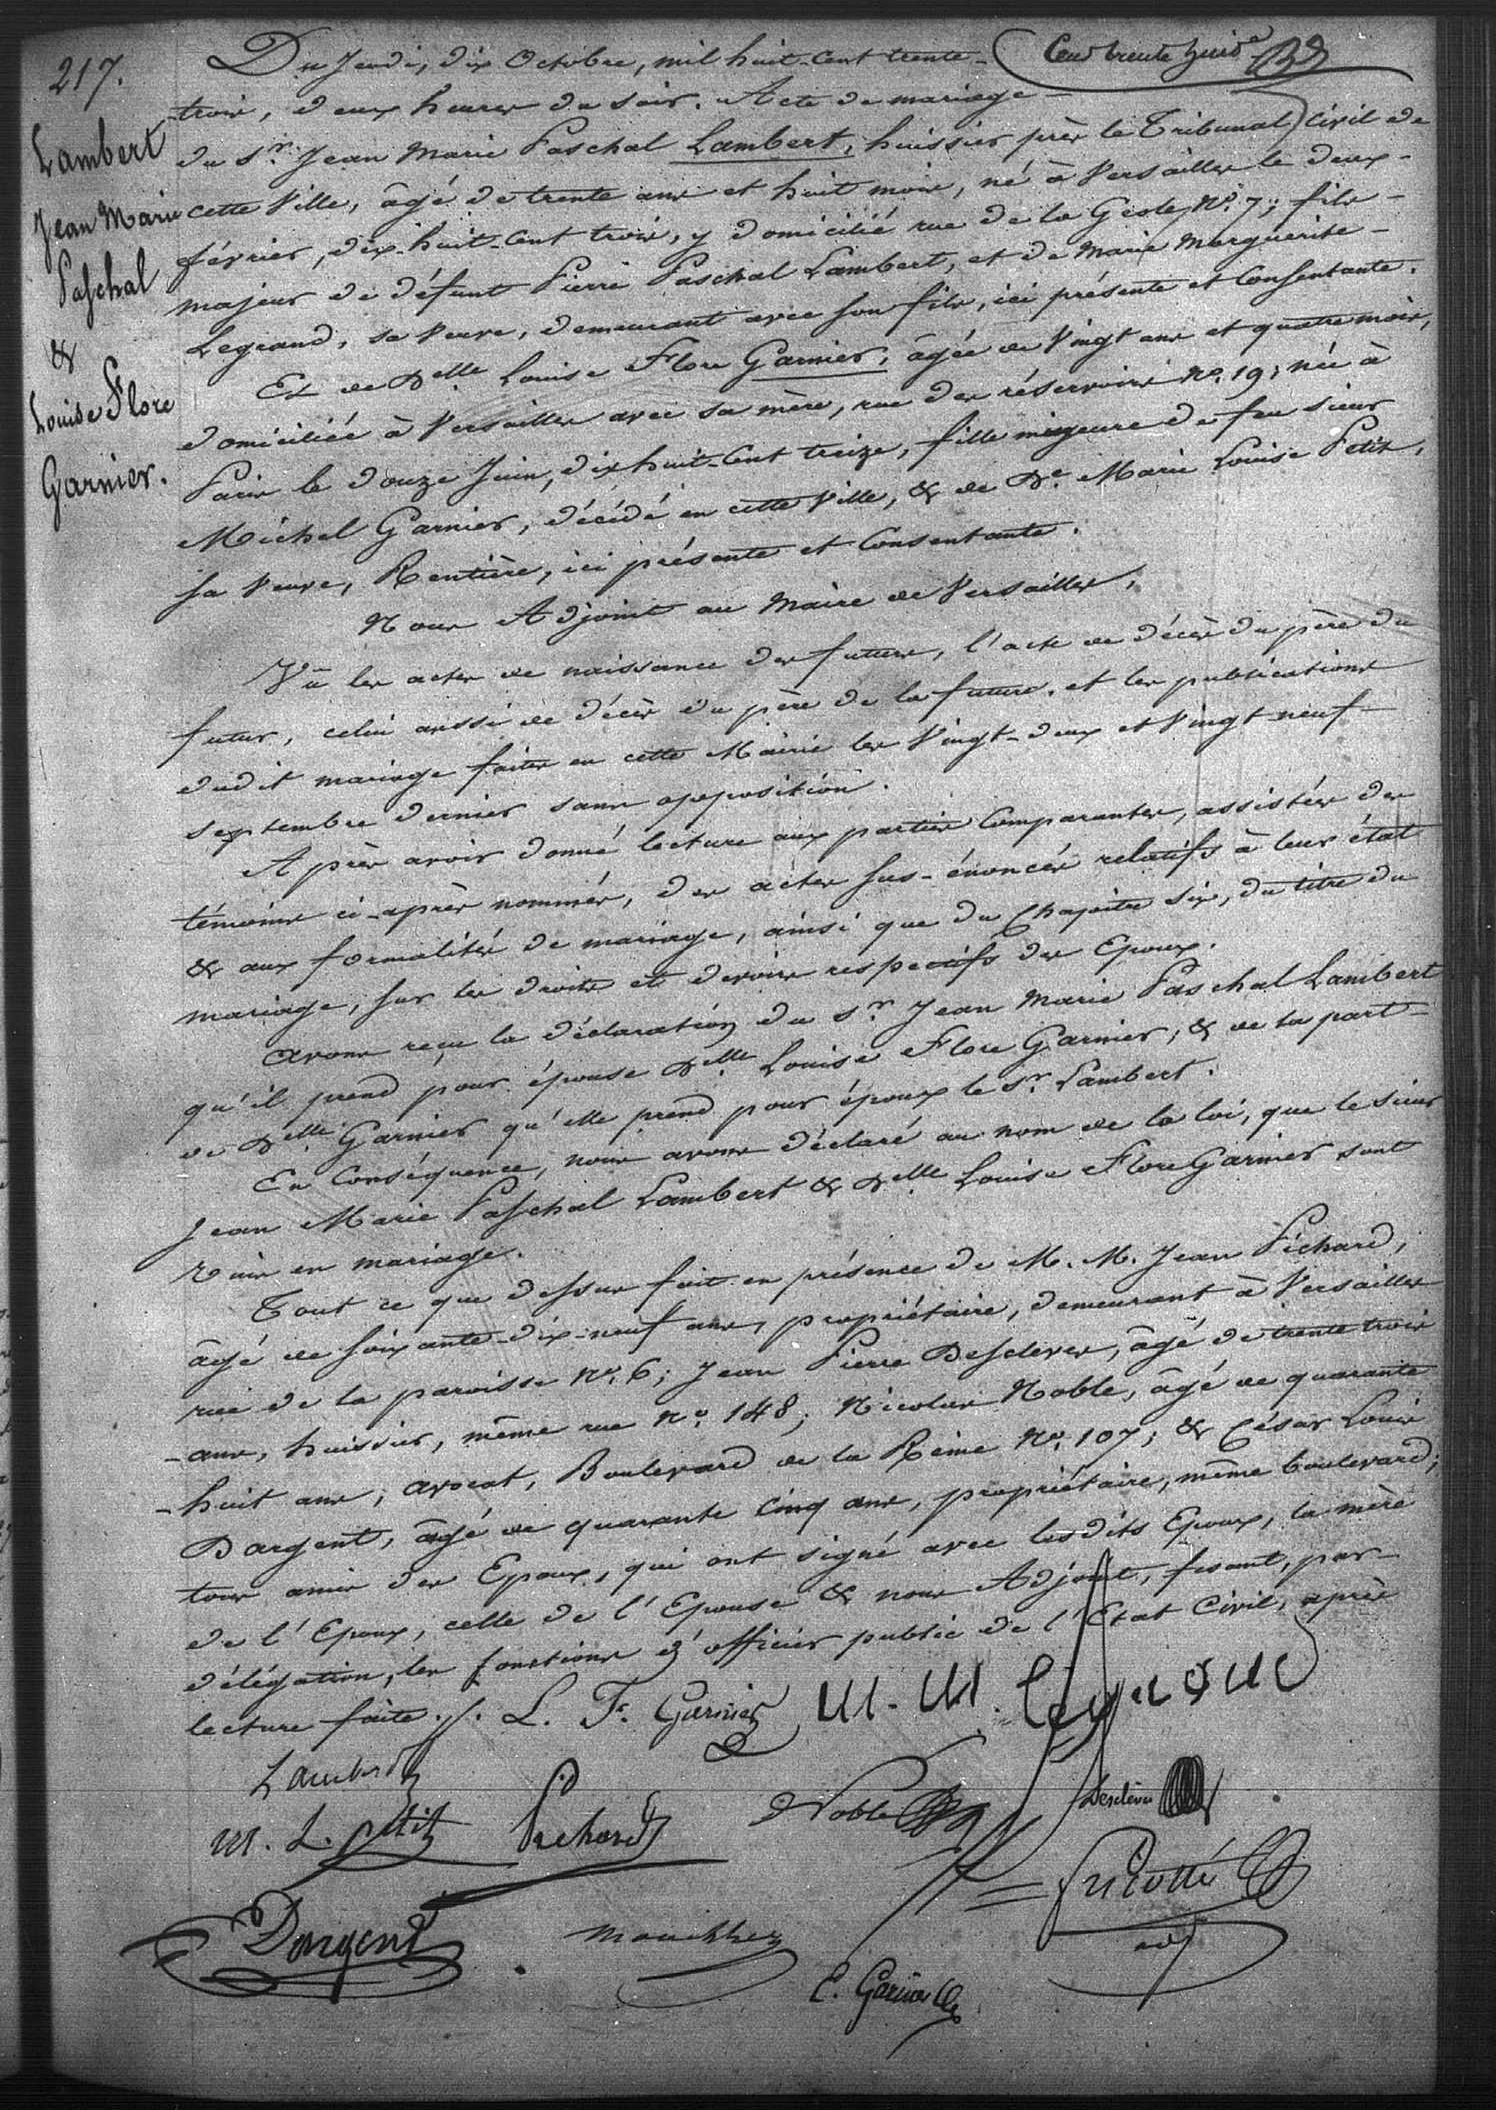 217.
Cent trente huit
Lambert
Jean Marie
Paschal
&
Louise Flore
Garnier.
Du Jeudi, dix Octobre, mil huit-cent trente-
trois, deux heures du soir. Acte de mariage -
du Sr. Jean Marie Paschal Lambert, huissier près le Tribunal Civil de
cette Ville, âgé de trente ans et huit mois, né à Versailles le deux-
février, dix-huit-cent trois, y domicilié rue de la Geole, No. 7; fils-
majeur de défunt Pierre Paschal Lambert, et de Marie Marguerite-
Legrand, sa Veuve, demeurant avec son fils, ici présente et Consentante.
Et de Delle Louise Flore Garnier, âgée de Vingt ans et quatre mois,
domiciliée à Versailles avec sa mère, rue des réservoirs No. 19; née à
Paris le douze Juin, dix huit-Cent treize, fille mineure de feu sieur
Michel Garnier, décédé en cette Ville, & de De. Marie Louise Petit,
sa Veuve, Rentière, ici présente et Consentante.
Nous Adjoint au Maire de Versailles,
Vû les actes de naissance des futurs, l'acte de décès du père du
futur, celui aussi de décès du père de la future, et les publications
dudit mariage faites en cette Mairie les Vingt-deux et Vingt neuf-
septembre dernier sans opposition.
Après avoir donné lecture aux parties Comparantes, assistées des
témoins ci-après nommés, des actes sus-énoncés relatifs à leur état
& aux formalités de mariage, ainsi que du Chapitre six, du titre du
mariage, sur les droits et devoirs respectifs des Epoux.
avons reçu la déclaration du Sr. Jean Marie Paschal Lambert
qu'il prend pour épouse Delle Louise Flore Garnier; & de la part-
de Delle Garnier qu'elle prend pour époux le Sr. Lambert.
En Conséquence, nous avons déclaré au nom de la loi, que le Sieur
Jean Marie Paschal Lambert & Delle Louise Flore Garnier sont
unis en mariage.
Tout ce que dessus fait en présence de M. M. Jean Pichard,
âgé de soixante-dix-neuf ans, propriétaire, demeurant à Versailles
rue de la paroisse No. 6; Jean Pierre Desclèves, âgé de trente trois
-ans, huissier, même rue No. 148; Nicolas Noble, âgé de quarante
-huit ans, avocat, Boulevard de la Reine No. 107; & César Louis
Dargent, âgé de quarante cinq ans, propriétaire, même boulevard;
tous amis des Epoux, qui ont signé avec lesdits Epoux, la mère
de l'Epoux, celle de l'Epouse & nous Adjoint, fesant, par-
délégation, les fonctions d'officier public de l'Etat Civil, après
lecture faite. L. F. Garnier M. M. Legrand
Lambert
M. L. petit Pichard Noble Desclèves
Dargent
E. Garnier